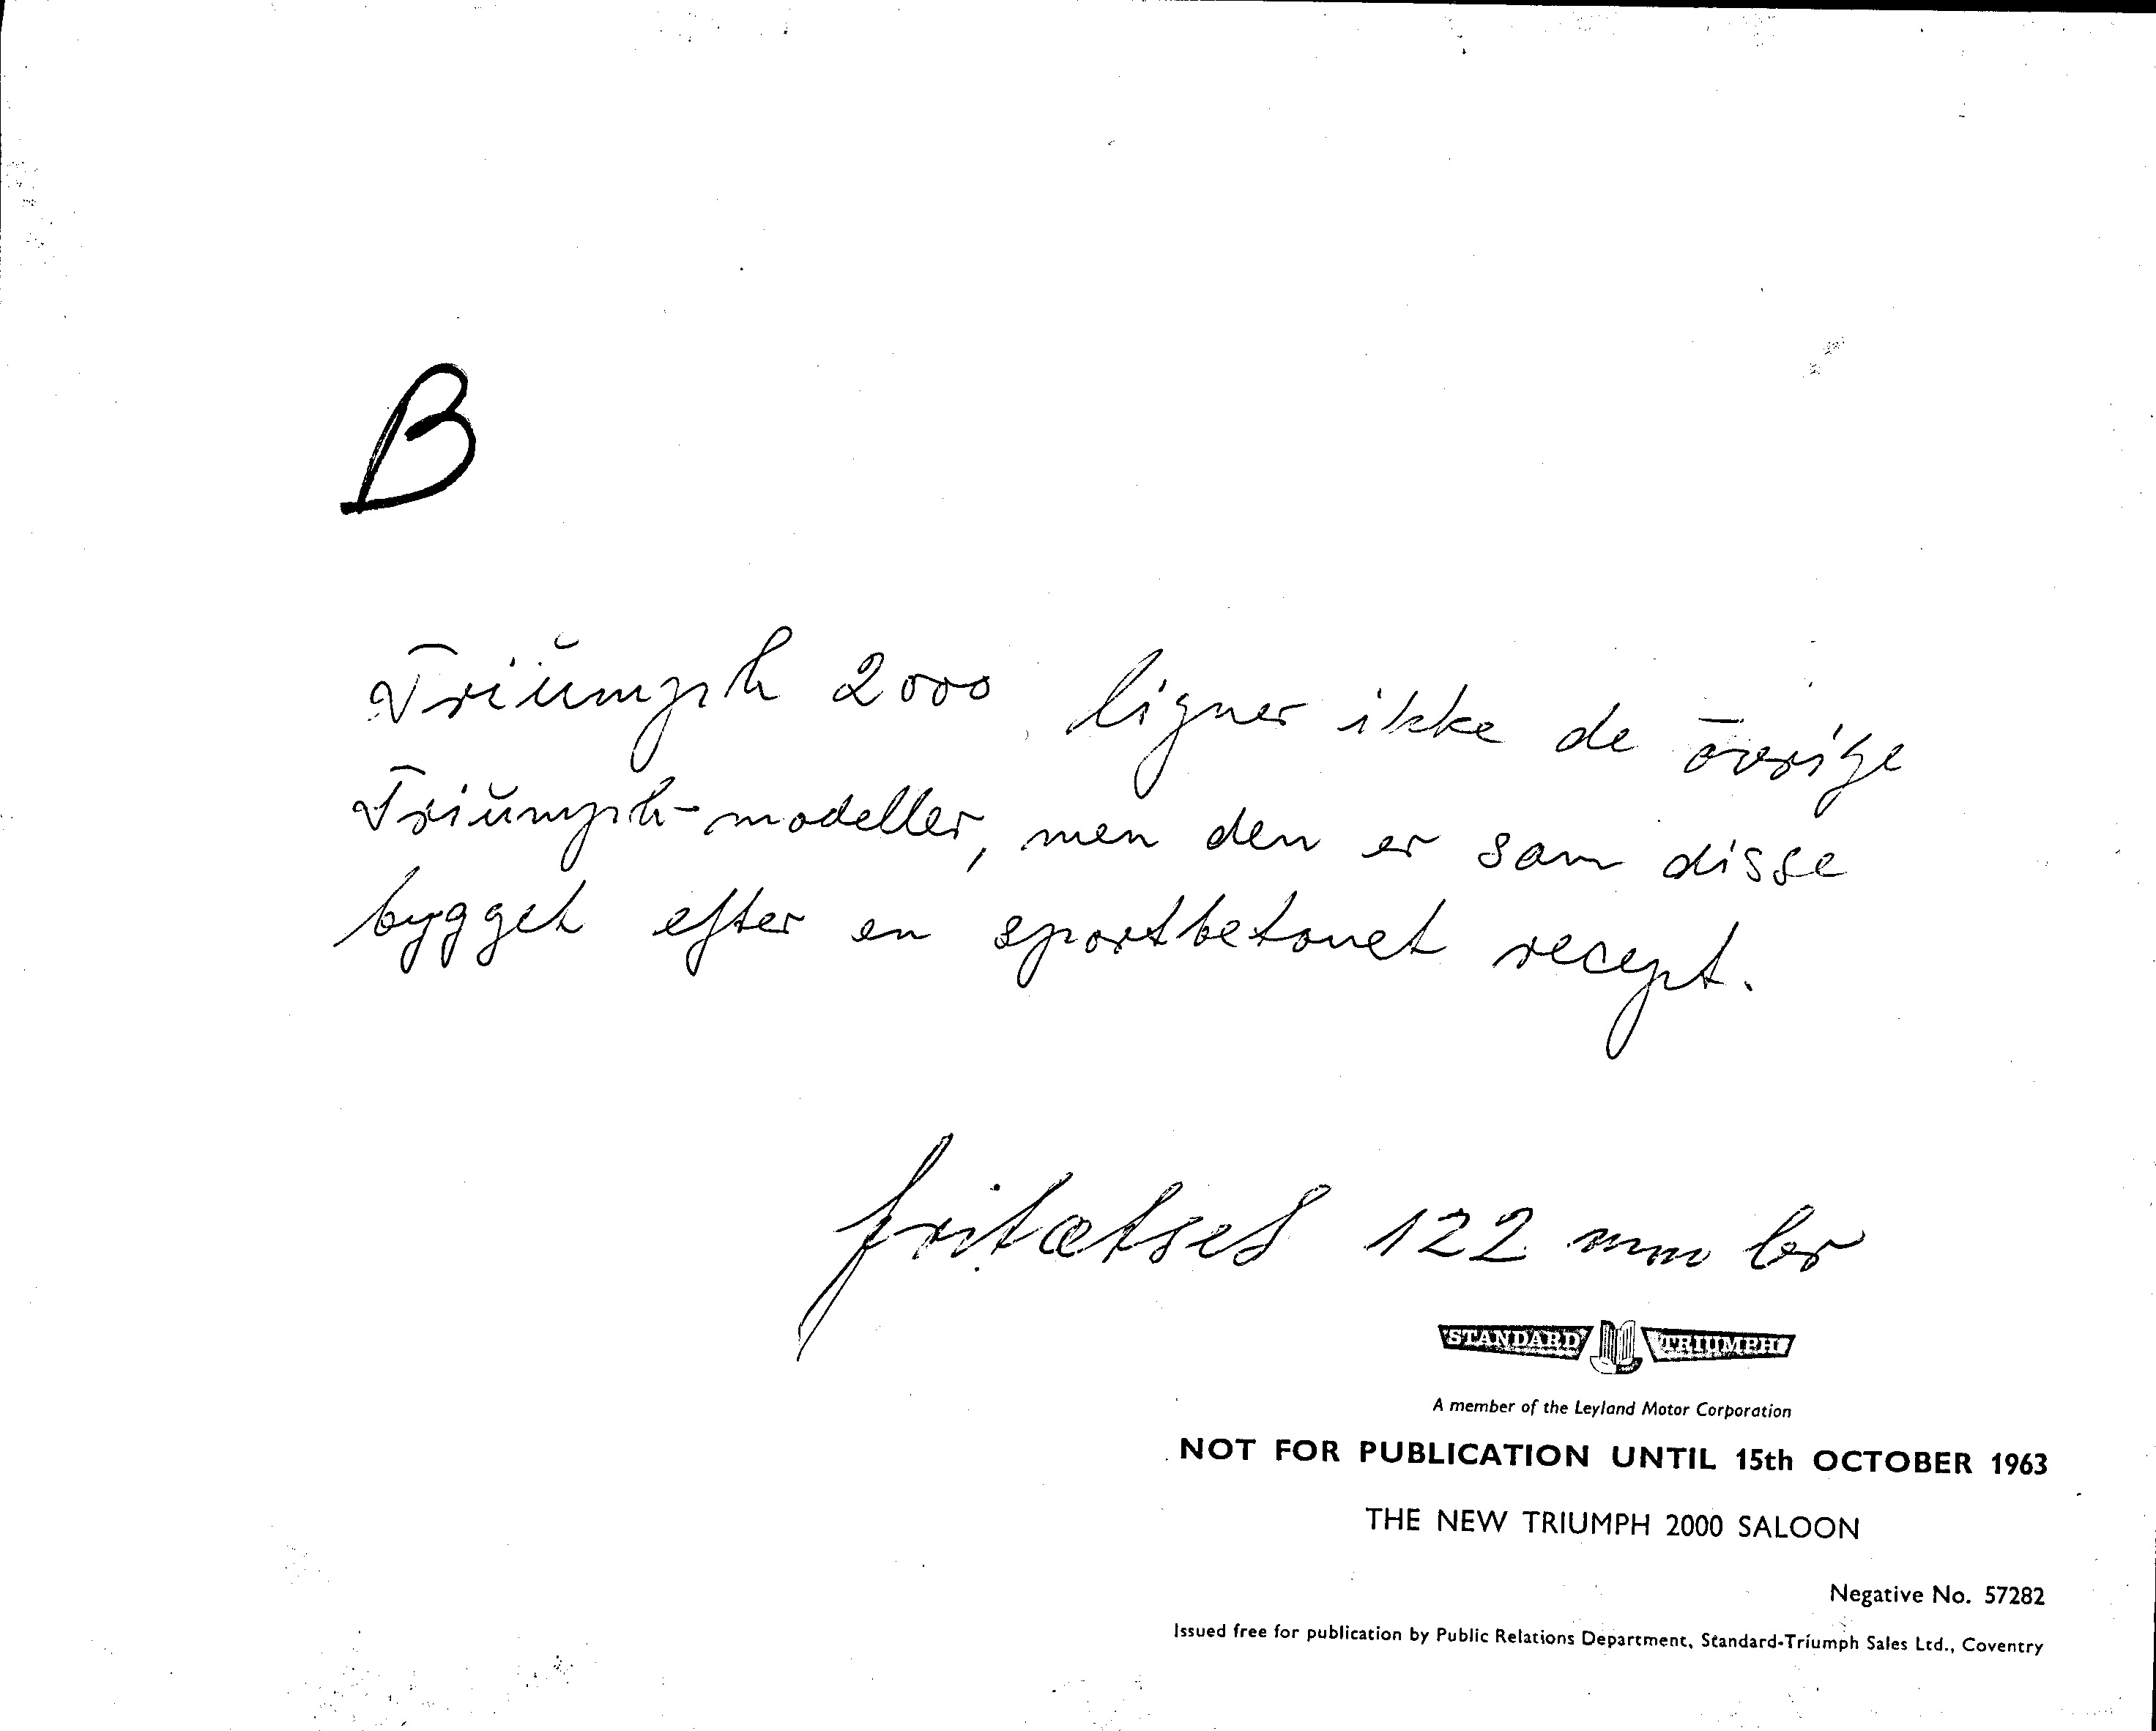 B
Triumph 2000 ligner ikke de øvrige
Triumph-modeller, men den er som disse
bygget efter en sportbetonet recept.
fritætset 122 mm br
STANDARD TRIUMPH
A member of the Leyland Motor Corporation
NOT FOR PUBLICATION UNTIL 15th OCTOBER 1963
THE NEW TRIUMPH 2000 SALOON
Negative No. 57282
Issued free for publication by Public Relations Department, Standard-Triumph Sales Ltd., Coventry